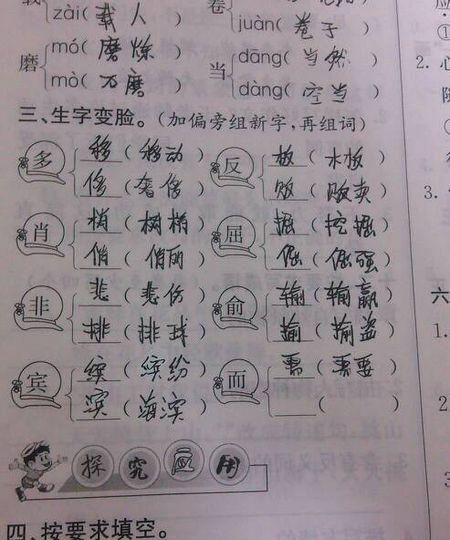 zài(载人)
juàn(卷子)
磨 mó(磨炼)
mò(石磨)
当 dāng(当然)
dàng(空当)
三、生字变脸。(加偏旁组新字,再组词)
多 移(移动)
侈(奢侈)
反 板(木板)
贩(贩卖)
肖 梢(树梢)
俏(俏丽)
屈 掘(挖掘)
倔(倔强)
非 悲(悲伤)
排(排球)
俞 输(输赢)
偷(偷盗)
宾 缤(缤纷)
滨(海滨)
而 需(需要)
( )
探究应用
四、按要求填空。
①
2.
3.
六
1.
2
3